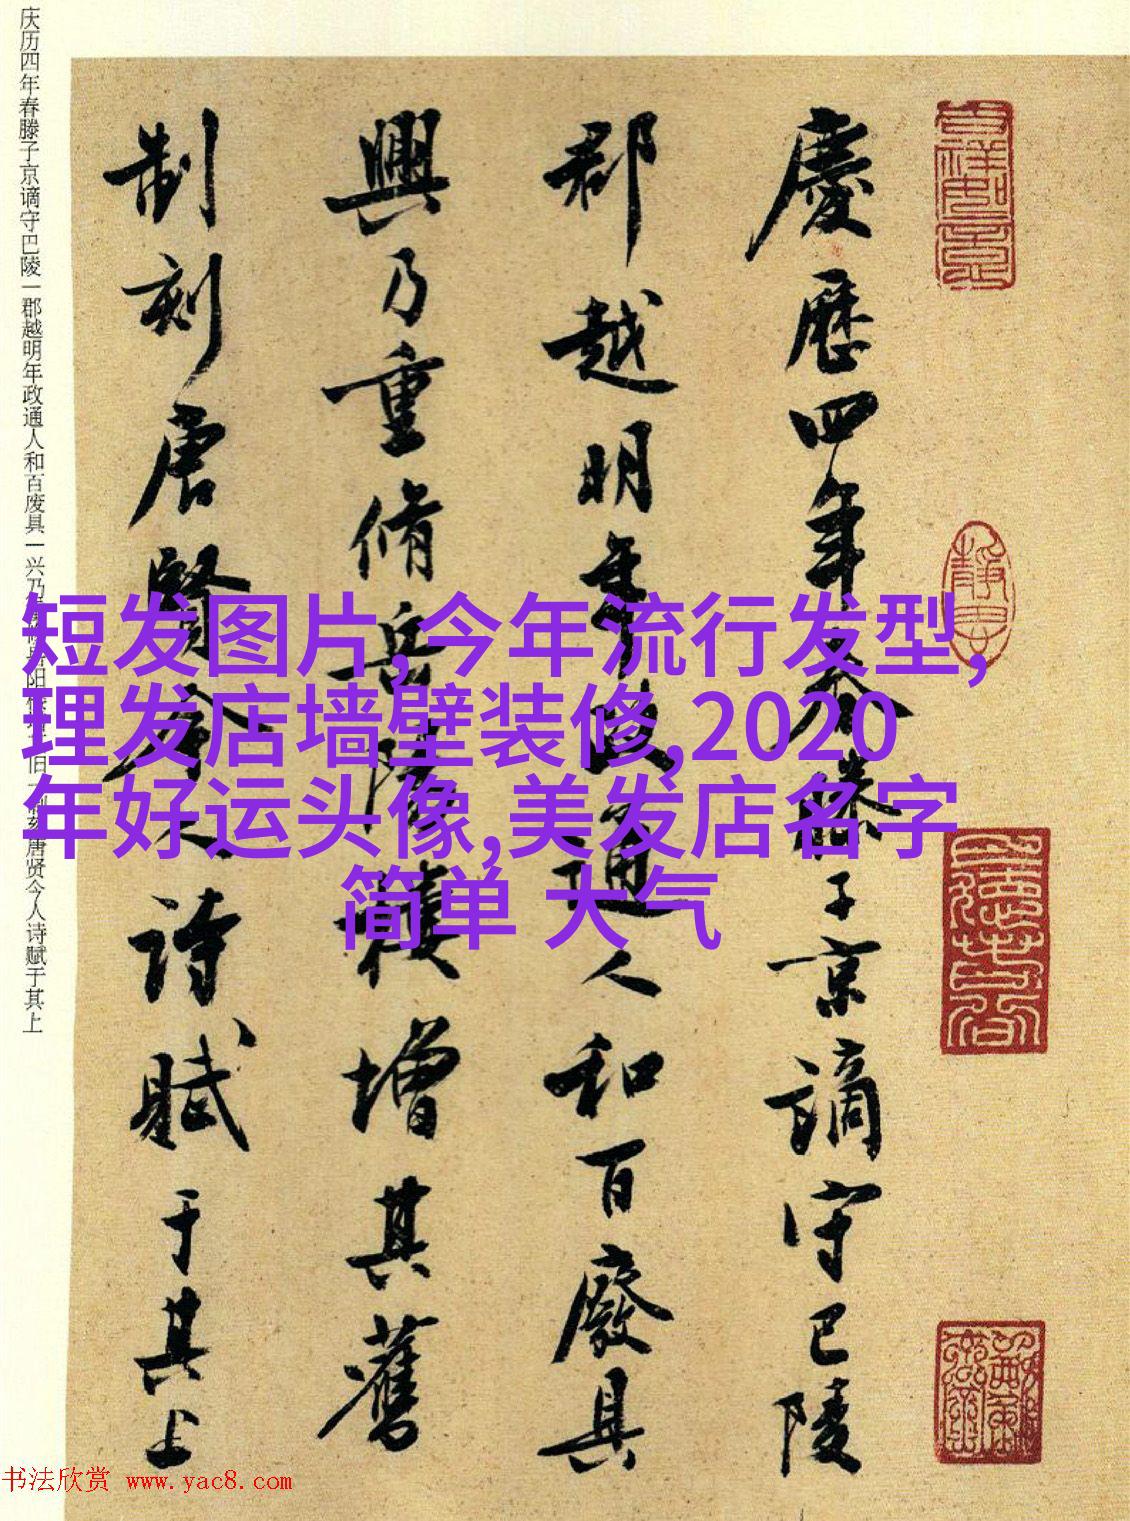 慶歷四年春滕子京謫守巴陵
郡越明年政通人和百廢具
興乃重脩岳陽樓增其舊
制刻唐賢今人詩賦于其上
庆历四年春滕子京谪守巴陵一郡越明年政通人和百废具一兴乃重修岳阳楼增其旧一制刻唐贤今人诗赋于其上
短发图片,今年流行发型,
理发店墙壁装修,2020
年好运头像,美发店名字
简单 大气
书法欣赏 www.yac8.com